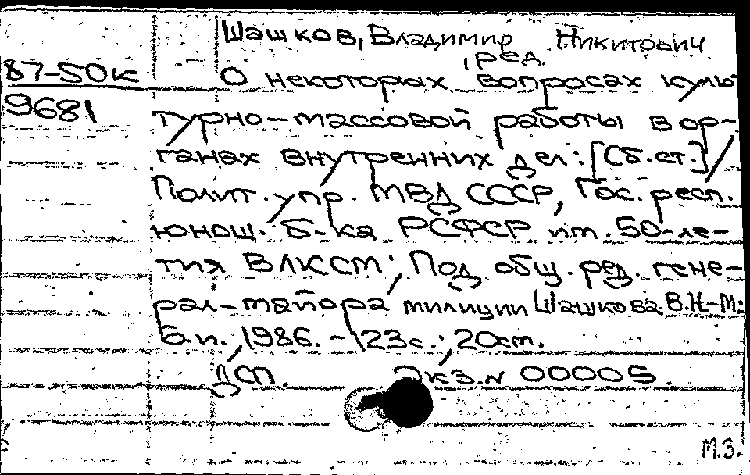 Шашков, Владимир Никитович
, ред.
87-50к О некоторых вопросах куль-
9681 турно-массовой работы в ор-
ганах внутренних дел: [Сб. ст.] /
Полит. упр. МВД СССР, Гос. респ.
юнош. б-ка РСФСР им. 50-ле-
тия ВЛКСМ; Под общ. ред. гене-
рал-майора милиции Шашкова В.Н.-М.:
б.и., 1986. - 123 с.; 20 см.
ДСП. Экз. N 00005.
М.З.